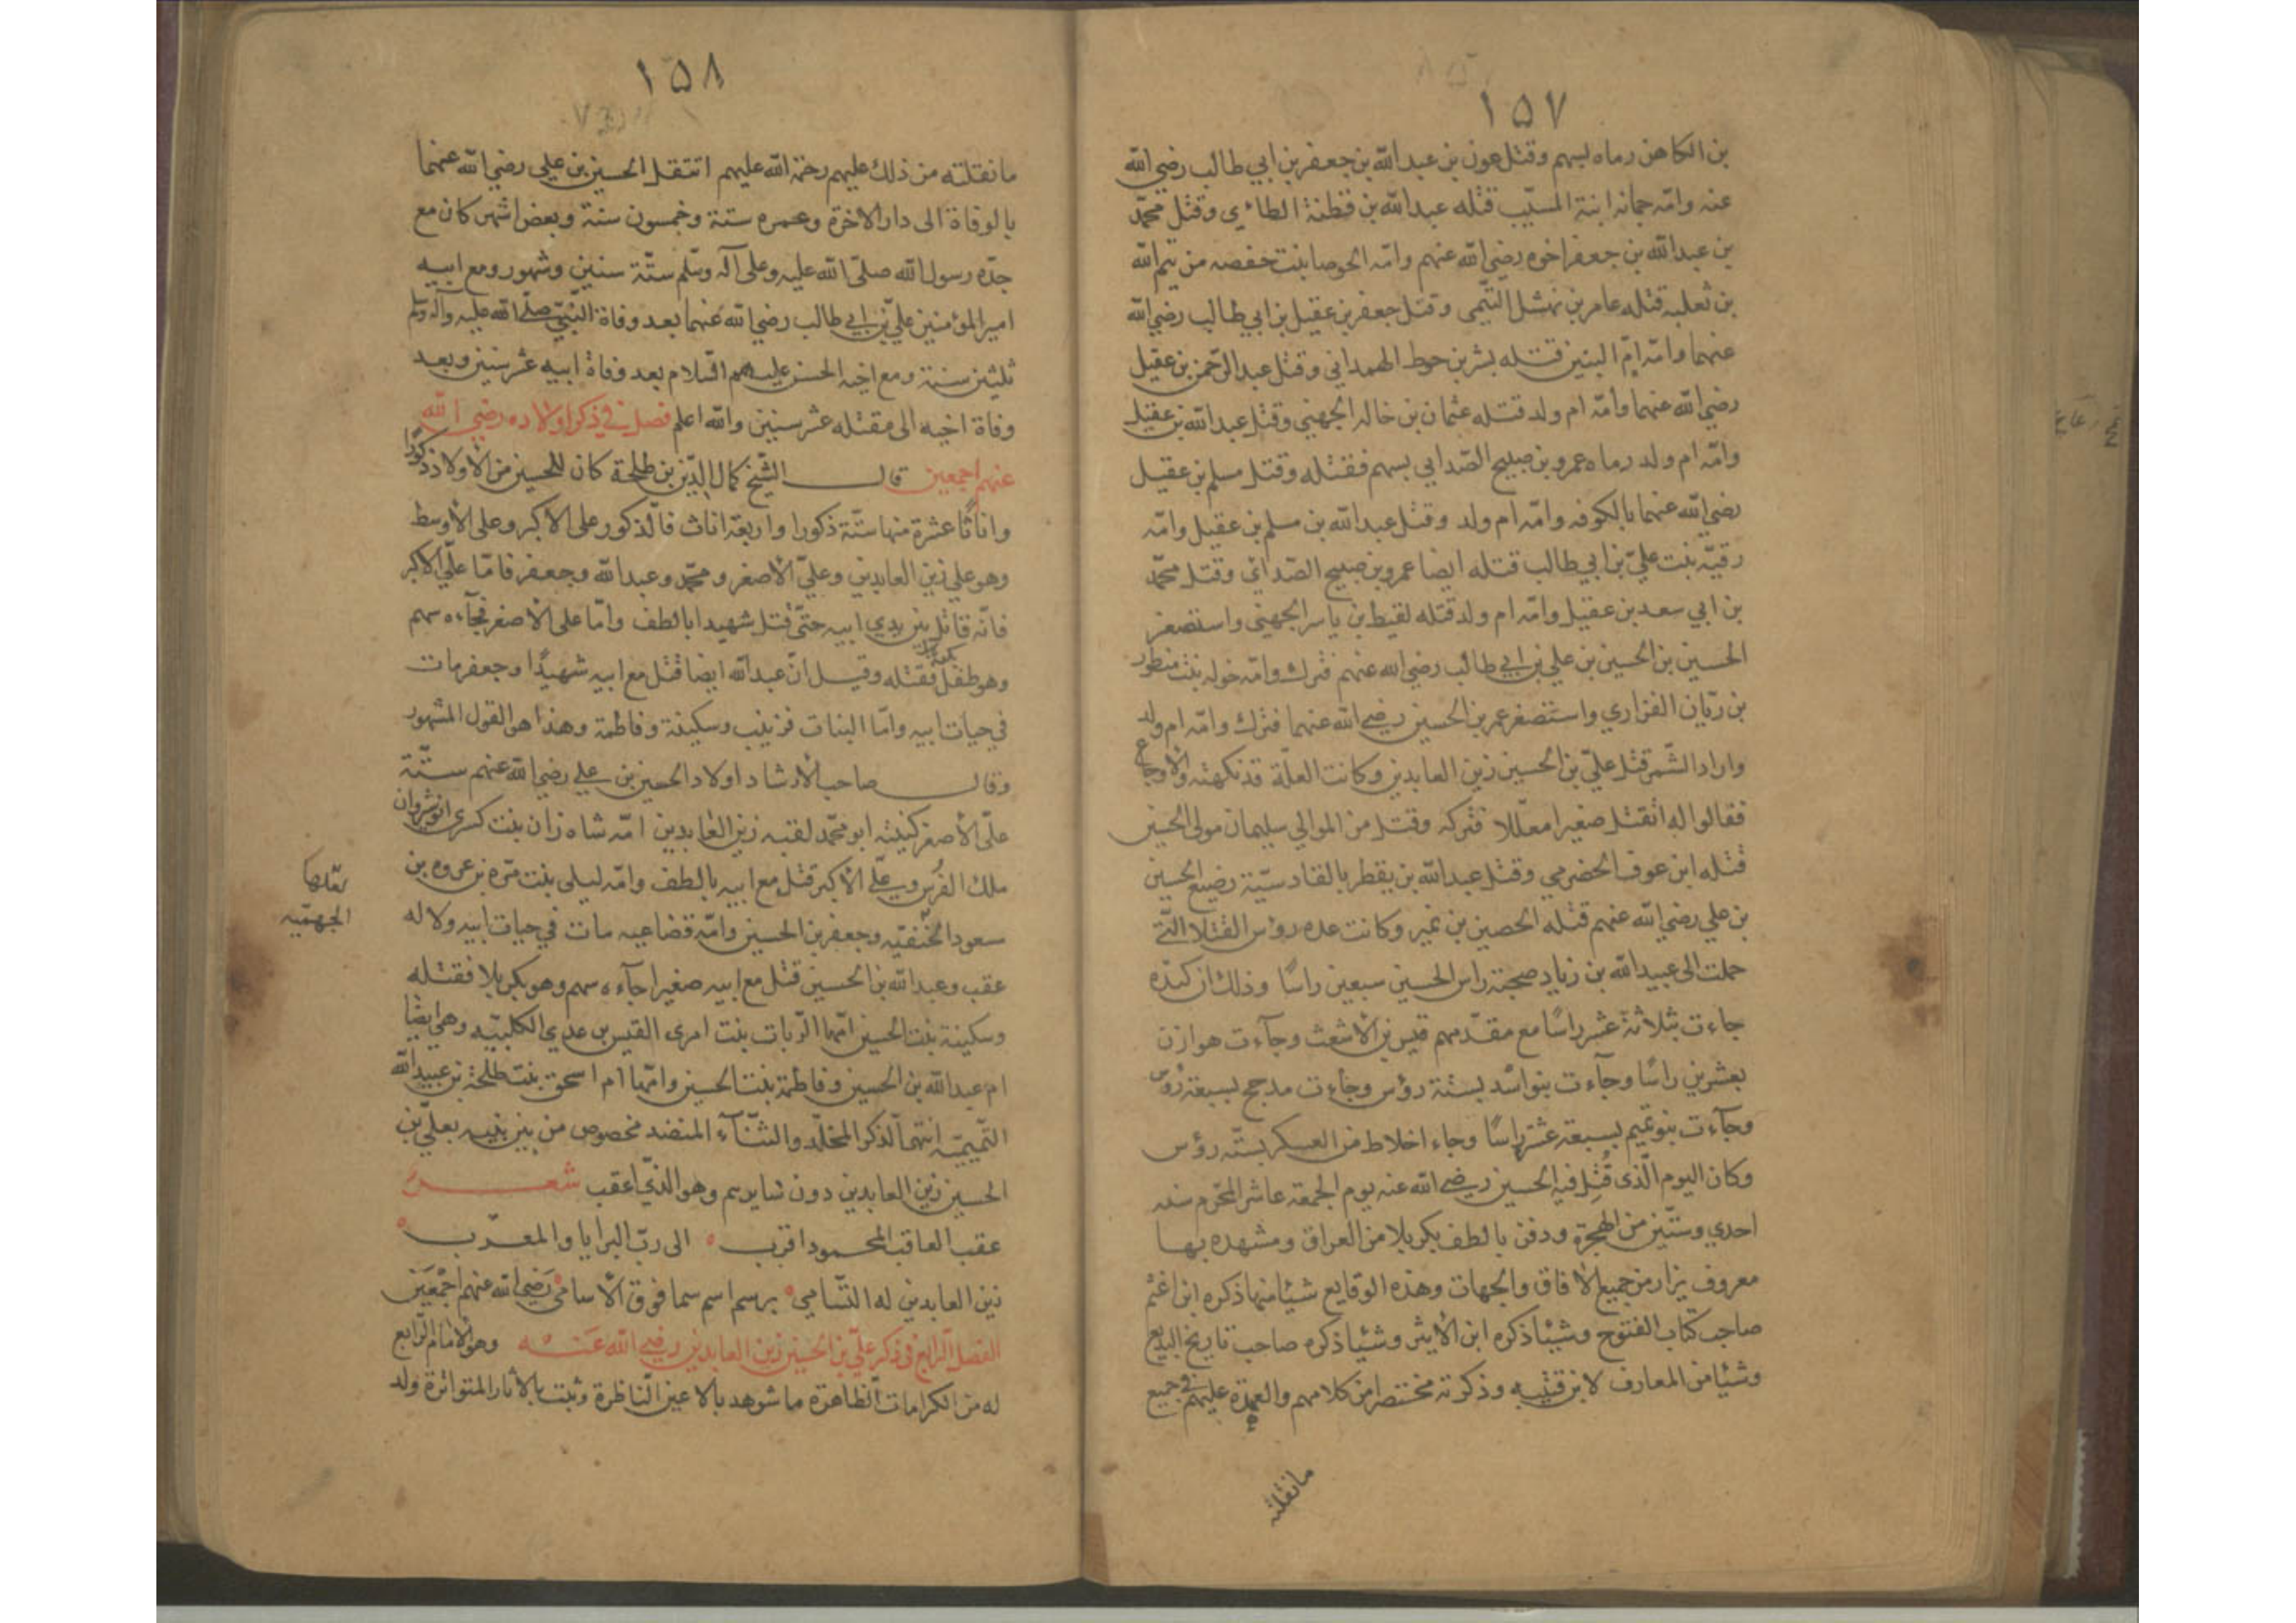 ١٥٧
بن الكاهن رماه بسهم وقتل عون بن عبد الله بن جعفر بن ابي طالب رضي الله
عنه وامّه جمانه ابنة المسيّب قتله عبد الله بن قطنة الطائي وقتل محمّد
بن عبد الله بن جعفر اخوه رضي الله عنهم وامّه الحوصا بنت خفصه من تيم الله
بن ثعلبه قتله عامر بن نهشل التّيمى وقتل جعفر بن عقيل بن ابي طالب رضي الله
عنهما وامّه امّ البنين قتله بشر بن حوط الهمداني وقتل عبد الرّحمن بن عقيل
رضي الله عنهما وأمّه ام ولد قتله عثمان بن خالد الجهني وقتل عبد الله بن عقيل
وامّه ام ولد رماه عمرو بن صبيح الصّدايي بسهم فقتله وقتل مسلم بن عقيل
رضي الله عنهما بالكوفه وامّه ام ولد وقتل عبد الله بن مسلم بن عقيل وامّه
رقيّه بنت عليّ بن ابي طالب قتله ايضا عمرو بن صبيح الصّدائي وقتل محمّد
بن ابي سعد بن عقيل وامّه ام ولد قتله لقيط بن ياسر الجهني واستصغر
الحسين بن الحسين بن علي بن ابي طالب رضي الله عنهم فترك وامّه خوله بنت منظور
بن زيان الفزاري واستصغر عمر بن الحسين رضي الله عنهما فترك وامّه ام ولد
واراد الشّمر قتل عليّ بن الحسين زين العابدين وكانت العلّة قد نهكته والاوجاع
فقالوا له اتقتل صغيرا معلّلا فتركه وقتل من الموالي سليمان مولى الحسين
قتله ابن عوف الحضرمي وقتل عبد الله بن يقطر بالقادسيّة رضيع الحسين
بن علي رضي الله عنهم قتله الحصين بن نمير وكانت عده رؤس القتلا الّتي
حملت الى عبيد الله بن زياد صحبة راس الحسين سبعين راسًا وذلك ان كنده
جاءت بثلاثة عشر راسًا مع مقدّمهم قيس بن الاشعث وجآءت هوازن
بعشرين راسًا وجآءت بنو اسد بستة رؤس وجاءت مدحج بسبعة رؤس
وجآءت بنو تميم بسبعة عشر راسًا وجاء اخلاط من العسكر بستّه رؤس
وكان اليوم الّذى قُتِل فيه الحسين رضي الله عنه يوم الجمعة عاشر المحّرم سنه
احدي وستّين من الهجرة ودفن بالطف بكربلا من العراق ومشهده بها
معروف يزار من جميع الافاق والجهات وهذه الوقايع شيًا منها ذكره ابن اعثم
صاحب كتاب الفتوح وشيًا ذكره ابن الاثير وشيًا ذكره صاحب تاريخ البديع
وشيًا من المعارف لابن قتيبه وذكرته مختصرا من كلامهم والعهدة عليهم في جميع
مانقلته
١٥٨
مانقلته من ذلك عليهم رحمة الله عليهم انتقل الحسين بن علي رضي الله عنهما
بالوفاة الى دار الاخرة وعمره ستة وخمسون سنة وبعض اشهر كان مع
جدّه رسول الله صلّى الله عليه وعلى آله وسلّم ستّة سنين وشهور ومع ابيه
امير المؤمنين عليّ بن ابي طالب رضي الله عنهما بعد وفاة النّبيّ صلّى الله عليه وآله وسلم
ثلثين سنة ومع اخيه الحسن عليهم السّلام بعد وفاة ابيه عشر سنين وبعد
وفاة اخيه الى مقتله عشر سنين والله اعلم فصل في ذكر اولاده رضي الله
عنهم اجمعين قال الشّيخ كمال الدّين بن طلحة كان للحسين من الاولاد ذكورًا
واناثًا عشرة منها ستّة ذكورا واربعة اناث فالّذكور على الاكبر وعلى الأوسط
وهو علي زين العابدين وعليّ الأصغر ومحمّد وعبد الله وجعفر فامّا عليّ الاكبر
فانّه قاتل بين يدي ابيه حتّى قتل شهيدا بالطف وامّا على الأصغر فجآءه سهم
وهو طفل فقتله وقيل انّ عبد الله ايضا قتل مع ابيه شهيدًا وجعفر مات
في حيات ابيه وامّا البنات فزينب وسكينة وفاطمة وهذا هو القول المشهور
وقال صاحب الأرشاد اولاد الحسين بن علي رضي الله عنهم ستّة
عليّ الأصغر كنيته ابو محمّد لقبه زين العابدين امّه شاه زان بنت كسرى انوشروان
ملك الفرس وعليّ الأكبر قتل مع ابيه بالطف وامّه ليلى بنت مرّه بن عروه بن
سعود الخنفيّه وجعفر بن الحسين وامّه قضاعيه مات في حيات ابيه ولا له
عقب وعبد الله بن الحسين قتل مع ابيه صغيرا جآءه سهم وهو بكربلا فقتله
وسكينة بنت الحسين امّها الرّبات بنت امرى القيس بن عدي الكلبيّه وهي ايضًا
ام عبد الله بن الحسين وفاطمة بنت الحسين وامّها ام اسحق بنت طلحة بن عبيد الله
التّميميّة انتهى الّذكر المخلّد والثّنآء المنضد مخصوص من بين بنيه بعليّ بن
الحسين زين العابدين دون سايرهم وهو الّذي اعقب شعر
عقب العاقب المحمود اقرب الى ربّ البرايا والمعرّب
زين العابدين له التّسامي برسم اسم سما فوق الأسامى رَضي الله عنهم اجْمَعَين
الفصل الرّابع فى ذكر عليّ بن الحسين زين العابدين رضي الله عَنه وهو الامام الرّابع
له من الكرامات الظاهرة ما شوهد بالاعين النّاظرة وثبت بالأثار المتواترة ولد
الجهميّه